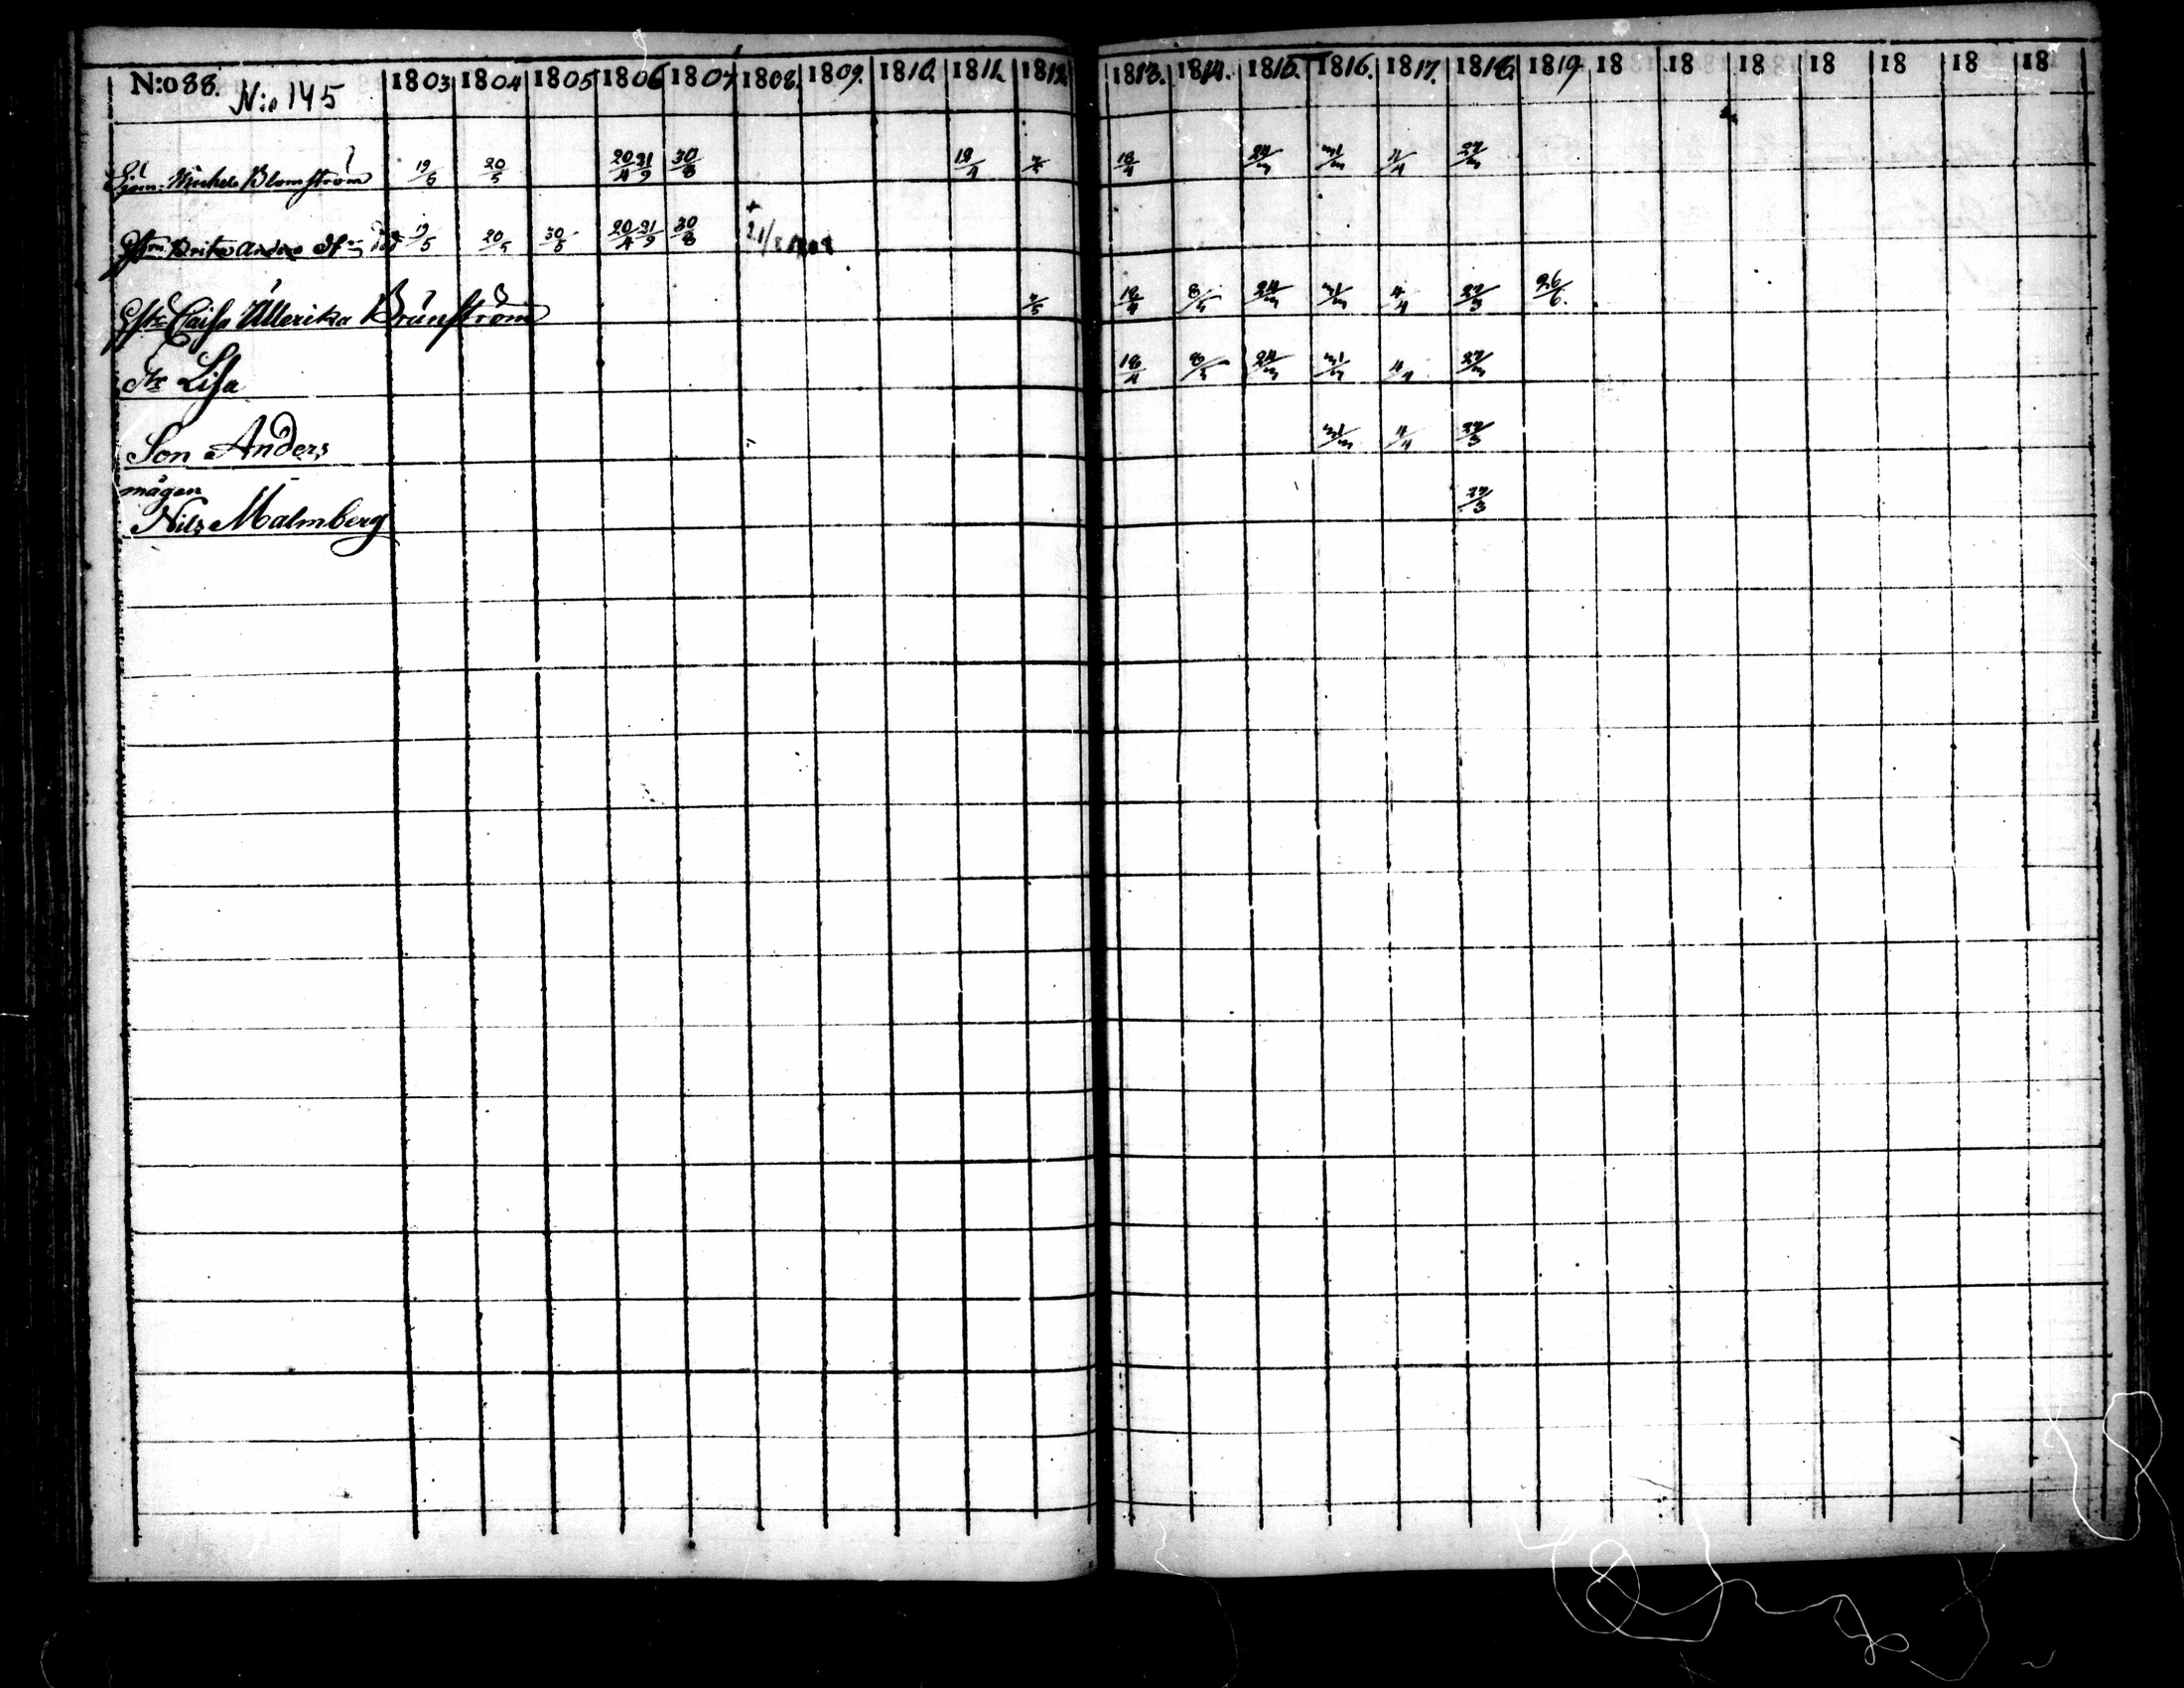 N:o 88. N:o 145 1803 1804 1805 1806 1807 1808. 1809. 1810. 1811. 1812 1813. 1814. 1815. 1816. 1817. 1818. 1819 18 18 18 18 18 18 18
Michel Blomström 19/5 20/5 20/4 21/9 30/8 18/4 18/4 24/3 31/3 4/4 27/3
Brita Anders dr död 19/5 20/5 30/5 20/4 21/9 30/8 +
Caisa Ullerika Brunström 7/5 18/4 8/5 24/3 31/3 4/4 27/3 26/6.
dr Lisa 18/4 8/5 24/3 31/3 4/4 27/3
Son Anders 31/3 4/4 27/3
mågen
Nils Malmberg 27/3